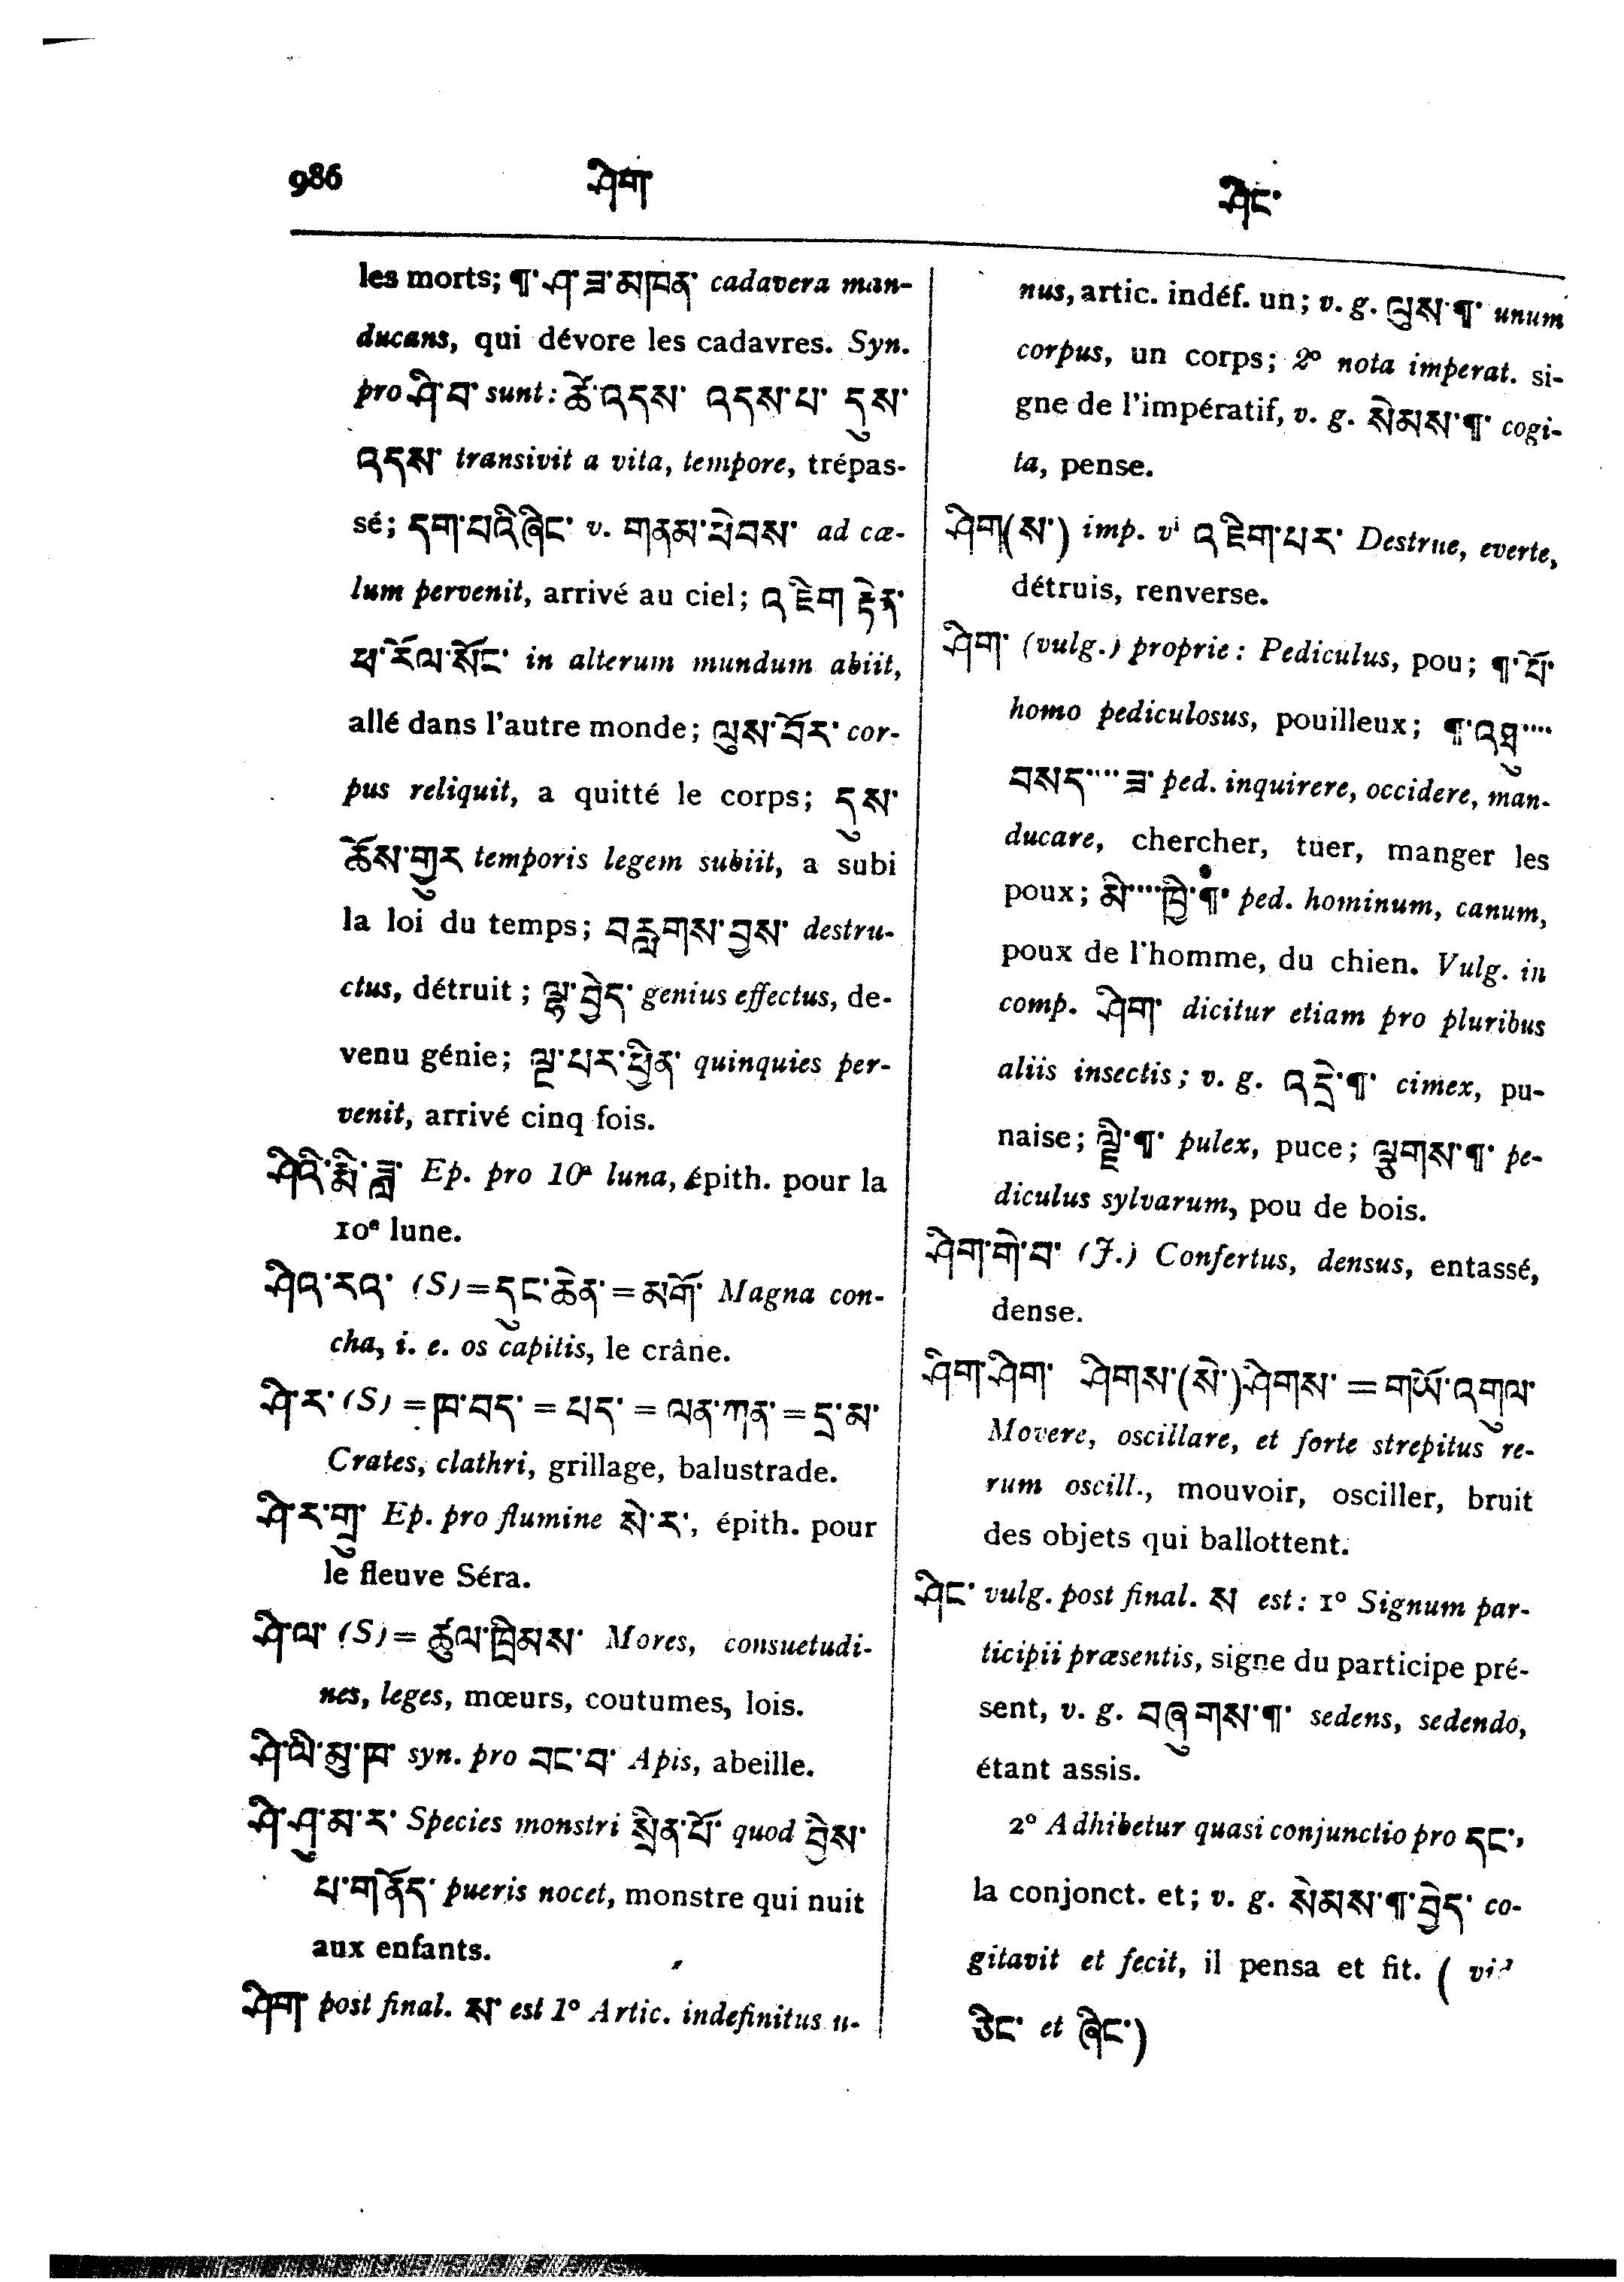 986 ཤིག་ ཤིང་
les morts; ¶་ཤ་ཟ་མཁན་ cadavera man-
ducans, qui dévore les cadavres. Syn.
pro ཤི་བ་ sunt: ཚེ་འདས་ འདས་པ་ དུས་
འདས་ transivit a vita, tempore, trépas-
sé; དག་པའི་ཞིང་ v. གནམ་ཕེབས་ ad cæ-
lum pervenit, arrivé au ciel; འཇིག་རྟེན་
ཕ་རོལ་སོང་ in alterum mundum abiit,
allé dans l'autre monde; ལུས་བོར་ cor-
pus reliquit, a quitté le corps; དུས་
ཆོས་གྱུར temporis legem subiit, a subi
la loi du temps; བརླགས་བྱས་ destru-
ctus, détruit; ལྷ་བྱེད་ genius effectus, de-
venu génie; ལྔ་པར་ཕྱིན་ quinquies per-
venit, arrivé cinq fois.
ཤིའི་སྨི་ཟླ་ Ep. pro 10ª luna, épith. pour la
10ᵉ lune.
ཤིའ་རའ་ (S) = དུང་ཆེན་ = མགོ་ Magna con-
cha, i. e. os capitis, le crâne.
ཤི་ར་ (S) = ཁ་བད་ = པད་ = ལན་ཀན་ = དྲ་མ་
Crates, clathri, grillage, balustrade.
ཤི་ར་གྲུ་ Ep. pro flumine སེ་ར་, épith. pour
le fleuve Séra.
ཤི་ལ་ (S) = ཚུལ་ཁྲིམས་ Mores, consuetudi-
nes, leges, mœurs, coutumes, lois.
ཤི་ལི་མུ་ཁ་ syn. pro བང་བ་ Apis, abeille.
ཤི་ཤུ་མ་ར་ Species monstri སྲིན་པོ་ quod བྱིས་
པ་གནོད་ pueris nocet, monstre qui nuit
aux enfants.
ཤིག་ post final. ས་ est 1º Artic. indefinitus u-
nus, artic. indéf. un; v. g. ལུས་¶་ unum
corpus, un corps; 2º nota imperat. si-
gne de l'impératif, v. g. སེམས་¶་ cogi-
ta, pense.
ཤིག(ས་) imp. vⁱ འཇིག་པར་ Destrue, everte,
détruis, renverse.
ཤིག་ (vulg.) proprie: Pediculus, pou; ¶་པོ་
homo pediculosus, pouilleux; ¶་འཐུ་····
བསད་····ཟ་ ped. inquirere, occidere, man-
ducare, chercher, tuer, manger les
poux; མི་····ཁྱི་¶་ ped. hominum, canum,
poux de l'homme, du chien. Vulg. in
comp. ཤིག་ dicitur etiam pro pluribus
aliis insectis; v. g. འདྲེ་¶་ cimex, pu-
naise; ལྗི་¶་ pulex, puce; ལྕུགས་¶་ pe-
diculus sylvarum, pou de bois.
ཤིག་གེ་བ་ (J.) Confertus, densus, entassé,
dense.
ཤིག་ཤིག་ ཤིགས་(སེ་)ཤིགས་ = གཡོ་འགུལ་
Movere, oscillare, et forte strepitus re-
rum oscill., mouvoir, osciller, bruit
des objets qui ballottent.
ཤིང་ vulg. post final. ས est: 1º Signum par-
ticipii præsentis, signe du participe pré-
sent, v. g. བཞུགས་¶་ sedens, sedendo,
étant assis.
2º Adhibetur quasi conjunctio pro དང་,
la conjonct. et; v. g. སེམས་¶་བྱེད་ co-
gitavit et fecit, il pensa et fit. (
ཅིང་ et ཞིང་)